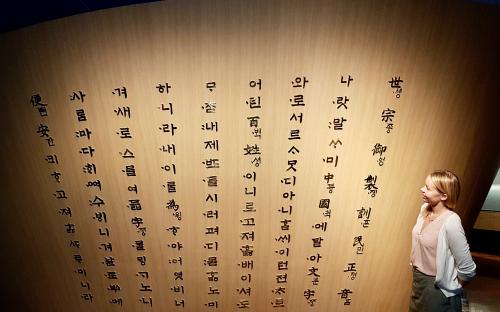 世솅宗종御엉製졩訓훈民민正졍音음
나·랏:말ᄊᆞ·미中듕國귁·에달·아文문字ᄍᆞᆼ
·와·로서르ᄉᆞᄆᆞᆺ디아·니ᄒᆞᆯ·ᄊᆡ·이런젼·ᄎᆞ·로
어·린百ᄇᆡᆨ姓셩·이니르·고·져·홇·배이·셔·도
ᄆᆞ·ᄎᆞᆷ:내제·ᄠᅳ·들시·러펴·디:몯ᄒᆞᇙ·노·미
하·니·라·내·이·ᄅᆞᆯ爲윙·ᄒᆞ·야:어엿·비너
·겨·새·로·스·믈여·듧字ᄍᆞᆼ·ᄅᆞᆯᄆᆡᇰ·ᄀᆞ노·니
:사ᄅᆞᆷ:마·다:ᄒᆡ·ᅇᅧ:수·ᄫᅵ니·겨·날·로·ᄡᅮ·메
便뼌安ᅙᅡᆫ·킈ᄒᆞ·고·져ᄒᆞᇙᄯᆞᄅᆞ·미니·라